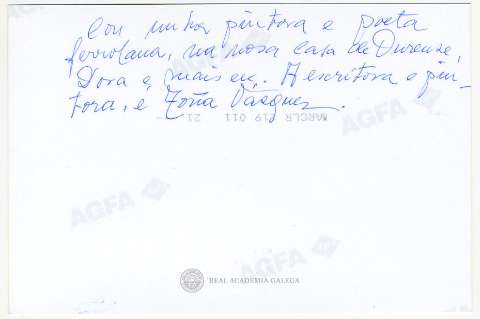 Con unha pintora e poeta
ferrolana, na nosa casa de Ourense,
Dora e mais eu. A escritora e pin-
tora, é Toña Vásquez.
MARCLR 019 011 21
AGFA
AGFA
AGFA
AGFA
REAL ACADEMIA GALEGA